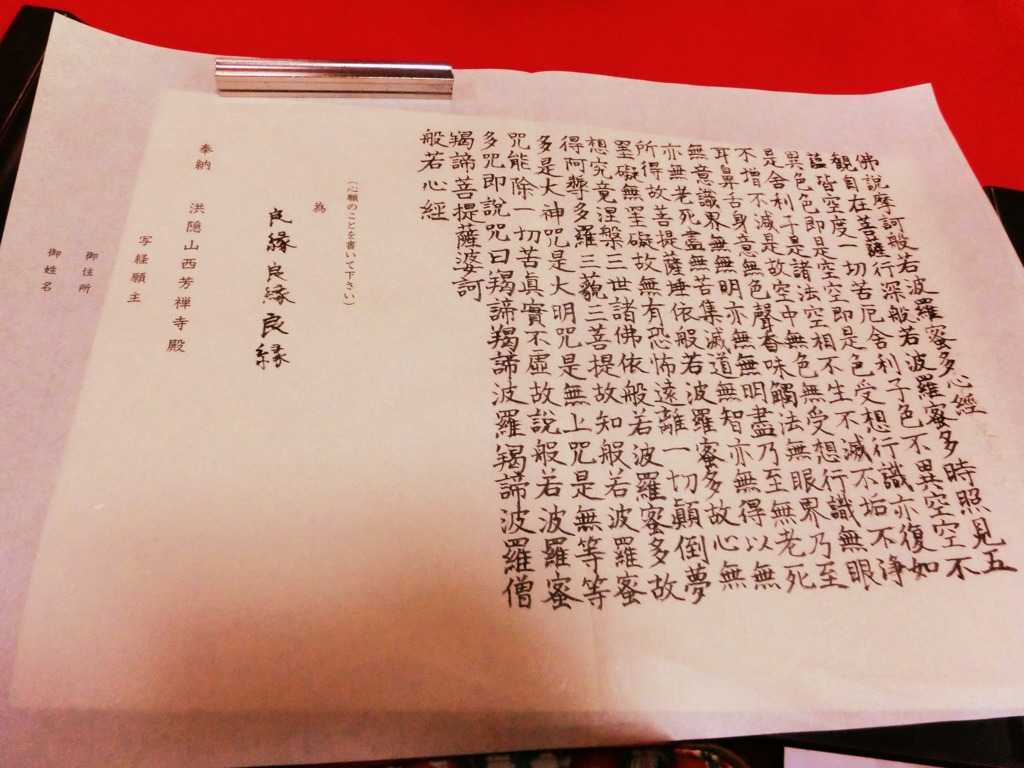 佛說摩訶般若波羅蜜多心經
觀自在菩薩行深般若波羅蜜多時照見五
蘊皆空度一切苦厄舍利子色不異空空不
異色色即是空空即是色受想行識亦復如
是舍利子是諸法空相不生不滅不垢不淨
不增不減是故空中無色無受想行識無眼
耳鼻舌身意無色聲香味觸法無眼界乃至
無意識界無無明亦無無明盡乃至無老死
亦無老死盡無苦集滅道無智亦無得以無
所得故菩提薩埵依般若波羅蜜多故心無
罣礙無罣礙故無有恐怖遠離一切顛倒夢
想究竟涅槃三世諸佛依般若波羅蜜多故
得阿耨多羅三藐三菩提故知般若波羅蜜
多是大神咒是大明咒是無上咒是無等等
咒能除一切苦眞實不虛故說般若波羅蜜
多咒即說咒曰羯諦羯諦波羅羯諦波羅僧
羯諦菩提薩婆訶
般若心經
(心願のことを書いて下さい)
為
良縁良縁良縁
奉納 洪隠山西芳禅寺殿
写経願主
御住所
御姓名